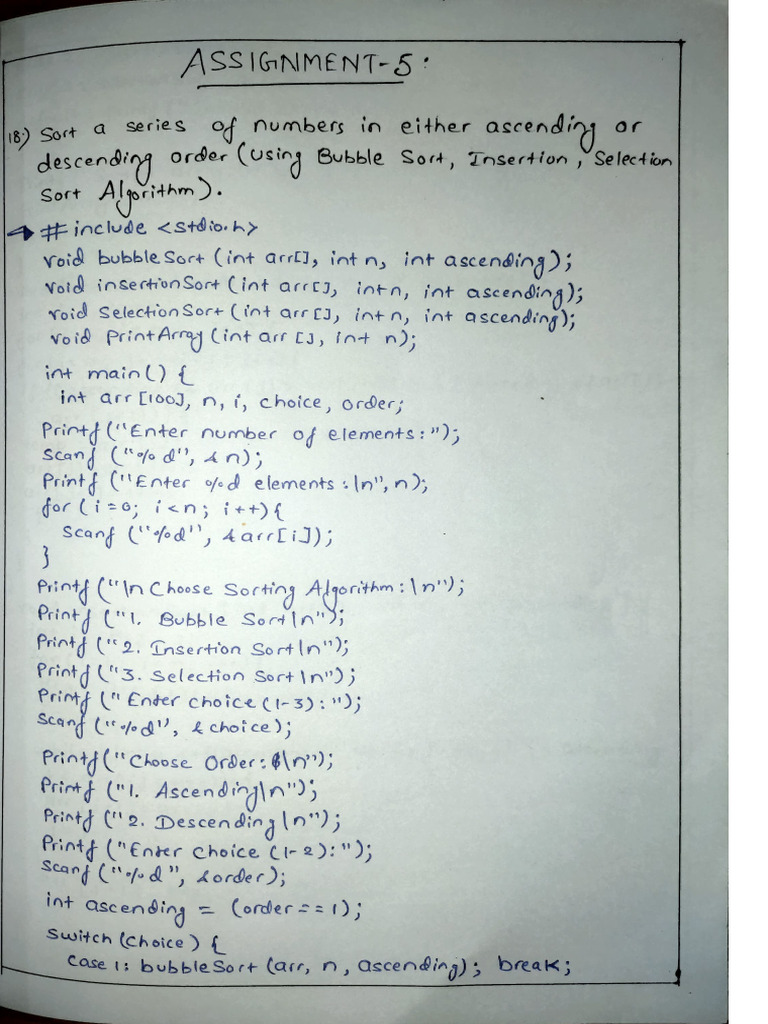 ASSIGNMENT-5:
18.) Sort a series of numbers in either ascending or
descending order (Using Bubble Sort, Insertion, Selection
Sort Algorithm).
→ # include <stdio.h>
void bubbleSort (int arr[], int n, int ascending);
void insertionSort (int arr[], int n, int ascending);
void SelectionSort (int arr[], int n, int ascending);
void PrintArray (int arr [], int n);
int main() {
int arr [100], n, i, choice, order;
Printf ("Enter number of elements:");
Scanf ("%d", &n);
Printf ("Enter %d elements:\n", n);
for (i=0; i<n; i++) {
Scanf ("%d", &arr[i]);
}
Printf ("\n Choose Sorting Algorithm:\n");
Printf ("1. Bubble Sort\n");
Printf ("2. Insertion Sort\n");
Printf ("3. Selection Sort\n");
Printf ("Enter choice (1-3):");
Scanf ("%d", &choice);
Printf ("Choose Order:\n");
Printf ("1. Ascending\n");
Printf ("2. Descending\n");
Printf ("Enter Choice (1-2):");
Scanf ("%d", &order);
int ascending = (order==1);
Switch (choice) {
Case 1: bubbleSort (arr, n, ascending); break;